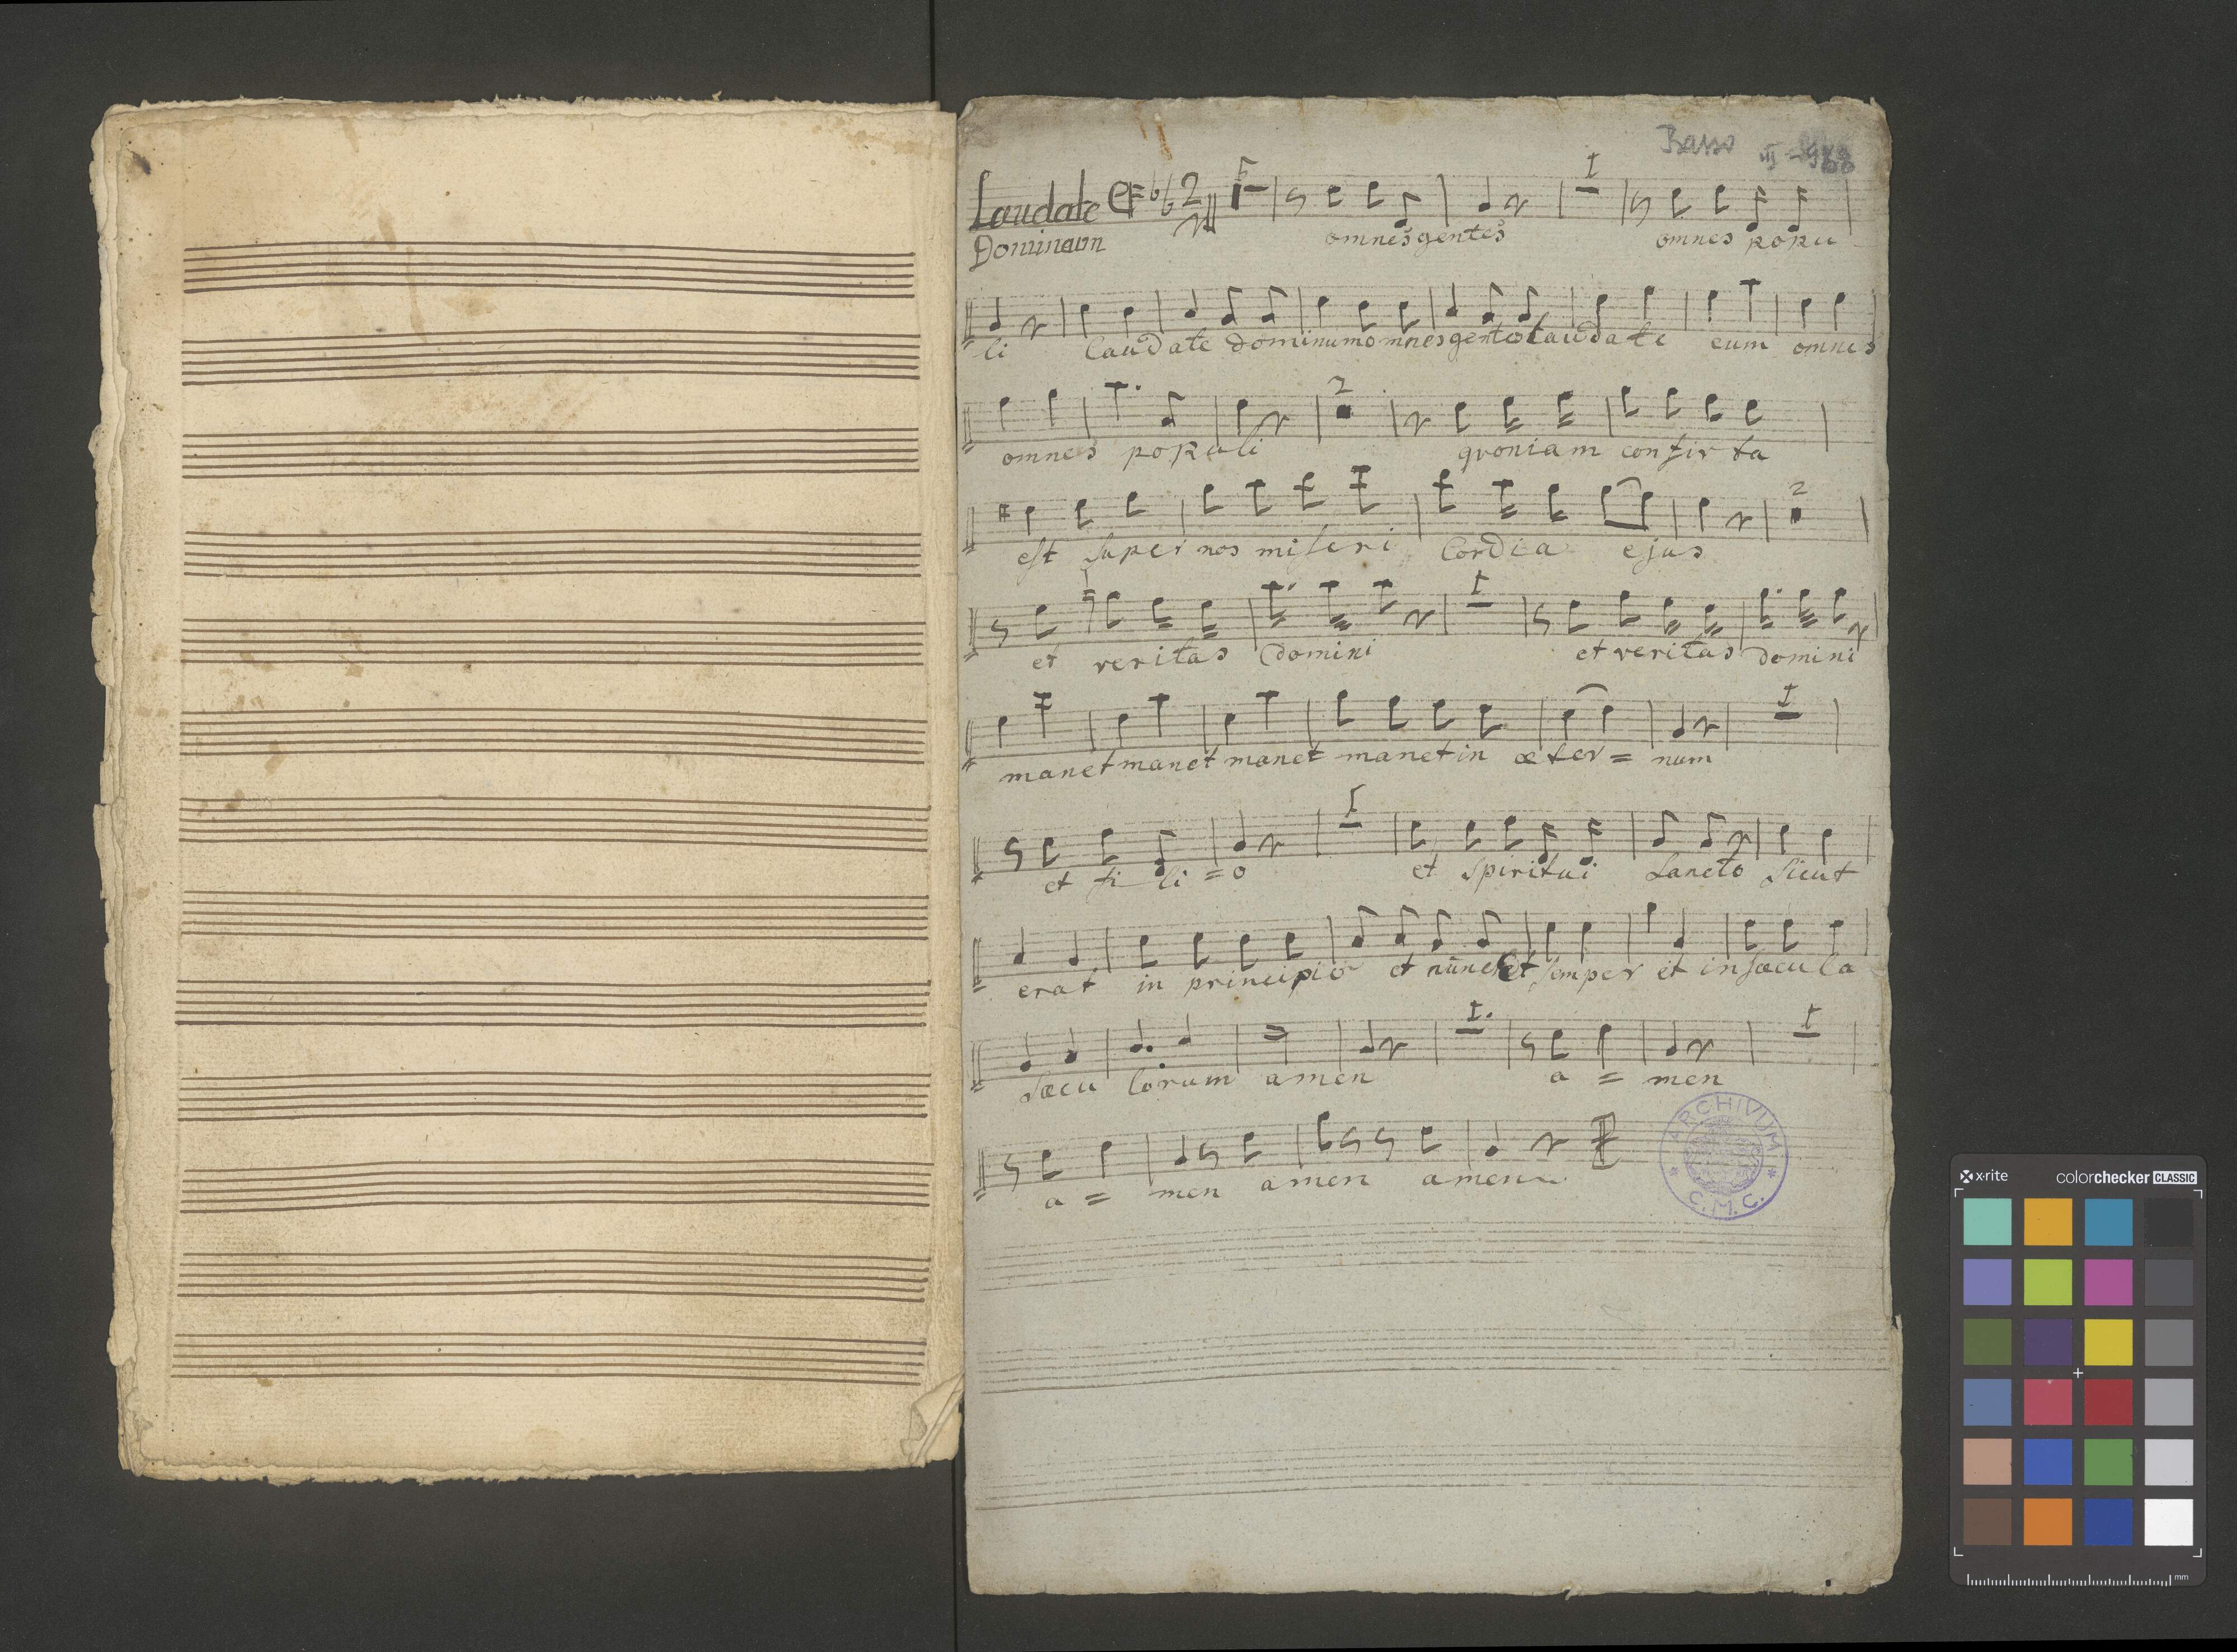 Basso
Laudate
Dominum
omnes gentes omnes popu
li laudate dominum omnes gentes laudate eum omnes
omnes populi quoniam confirta
est super nos miseri cordia ejus
et veritas domini et veritas domini
manet manet manet manet in æter = num
et fi li = o et spiritui sancto sicut
erat in principio et nunc et semper et in sæcula
sæcu lorum amen a = men
a = men amen amen
ARCHIVUM
C.M.C.
x-rite colorchecker CLASSIC
mm